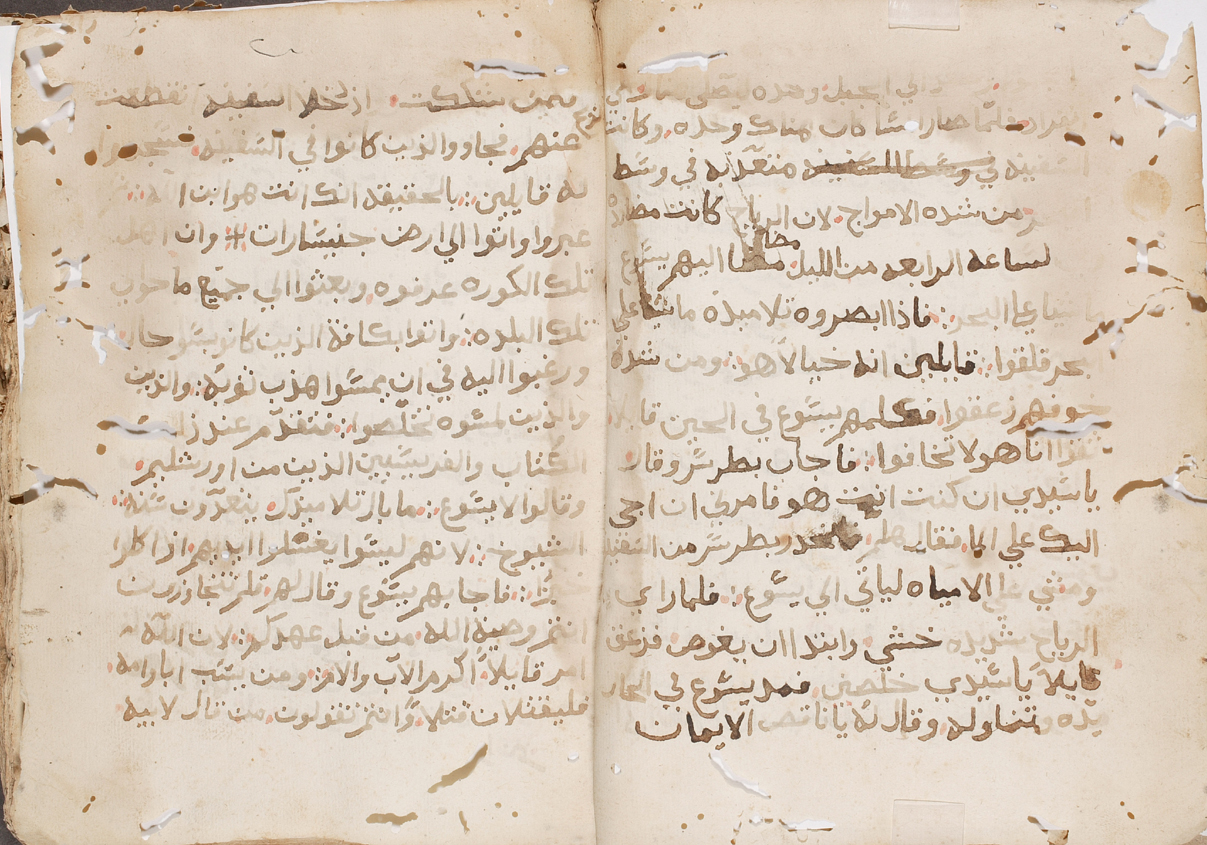 الي الجبل وحده ليصلي
فلما صار مسا كان هناك وحده. وكانت
السفينه في وسط السفينه منعّدبه في وسَط
من شده الامواج. لان الرياح كانت
لساعه الرابعه من الليل مضا اليهم يسَوع
ماشيا علي البحر: فاذا ابصروه تلاميذه ماشيا علي
البحر قلقوا: قايلين انه خيالا هو: ومن شده
خوفهم زعقوا. فكلمهم يسَوع في الحين قايلا
ثقوا انا هو لا تخافوا: فاجاب بطرسَ وقال
يا سَيدي ان كنت انت هو فامرني ان اجي
اليك علي الما. فقال هلم. بطرسَ من السَفينه
ومشي علي الامياه لياتي الي يسَوع: فلما راي
الرياح شديده خشي وابتدا ان يغوص. فزعق
قايلا يا سَيدي خلصني. فمد يسَوع في الحال
يده وتناوله. وقال له يا ناقص الايمان
شككت. اذ دخلا السفينه انقطعت
عنهم. فجاوو الذين كانوا في السَفينه. فسَجدوا
له قايلين: بالحقيقه انك انت هو ابن الله:
عبروا واتوا الي ارض جنيسَارات # وان اهل
تلك الكوره عرفوه. وبعثوا الي جميع ما حول
تلك البلده: واتوا بكافة الذين كانو بسَو حال
ورغبوا اليه في ان يمسَوا هذب ثوبه: والذين
والذين لمسَوه تخلصوا: فتقدّم عند ذلك
الكتاب والفريسَيين الذين من اورشليم.
وقالوا لايسَوع: ما بال تلاميذك يتعدّون سَنة
الشيوخ: لانهم ليسَوا يغسَلوا ايديهم اذا اكلوا
خبزًا: فاجابهم يسَوع وقال لهم فلم تتجاوزون
انتم وصية الله. من قبل عهدكم: لان الله
امر قايلاً: اكرم الاب والام: ومن يسَب ابا وامه
فليقتلان قتلا. وانتم تقولون. من قال لابيه